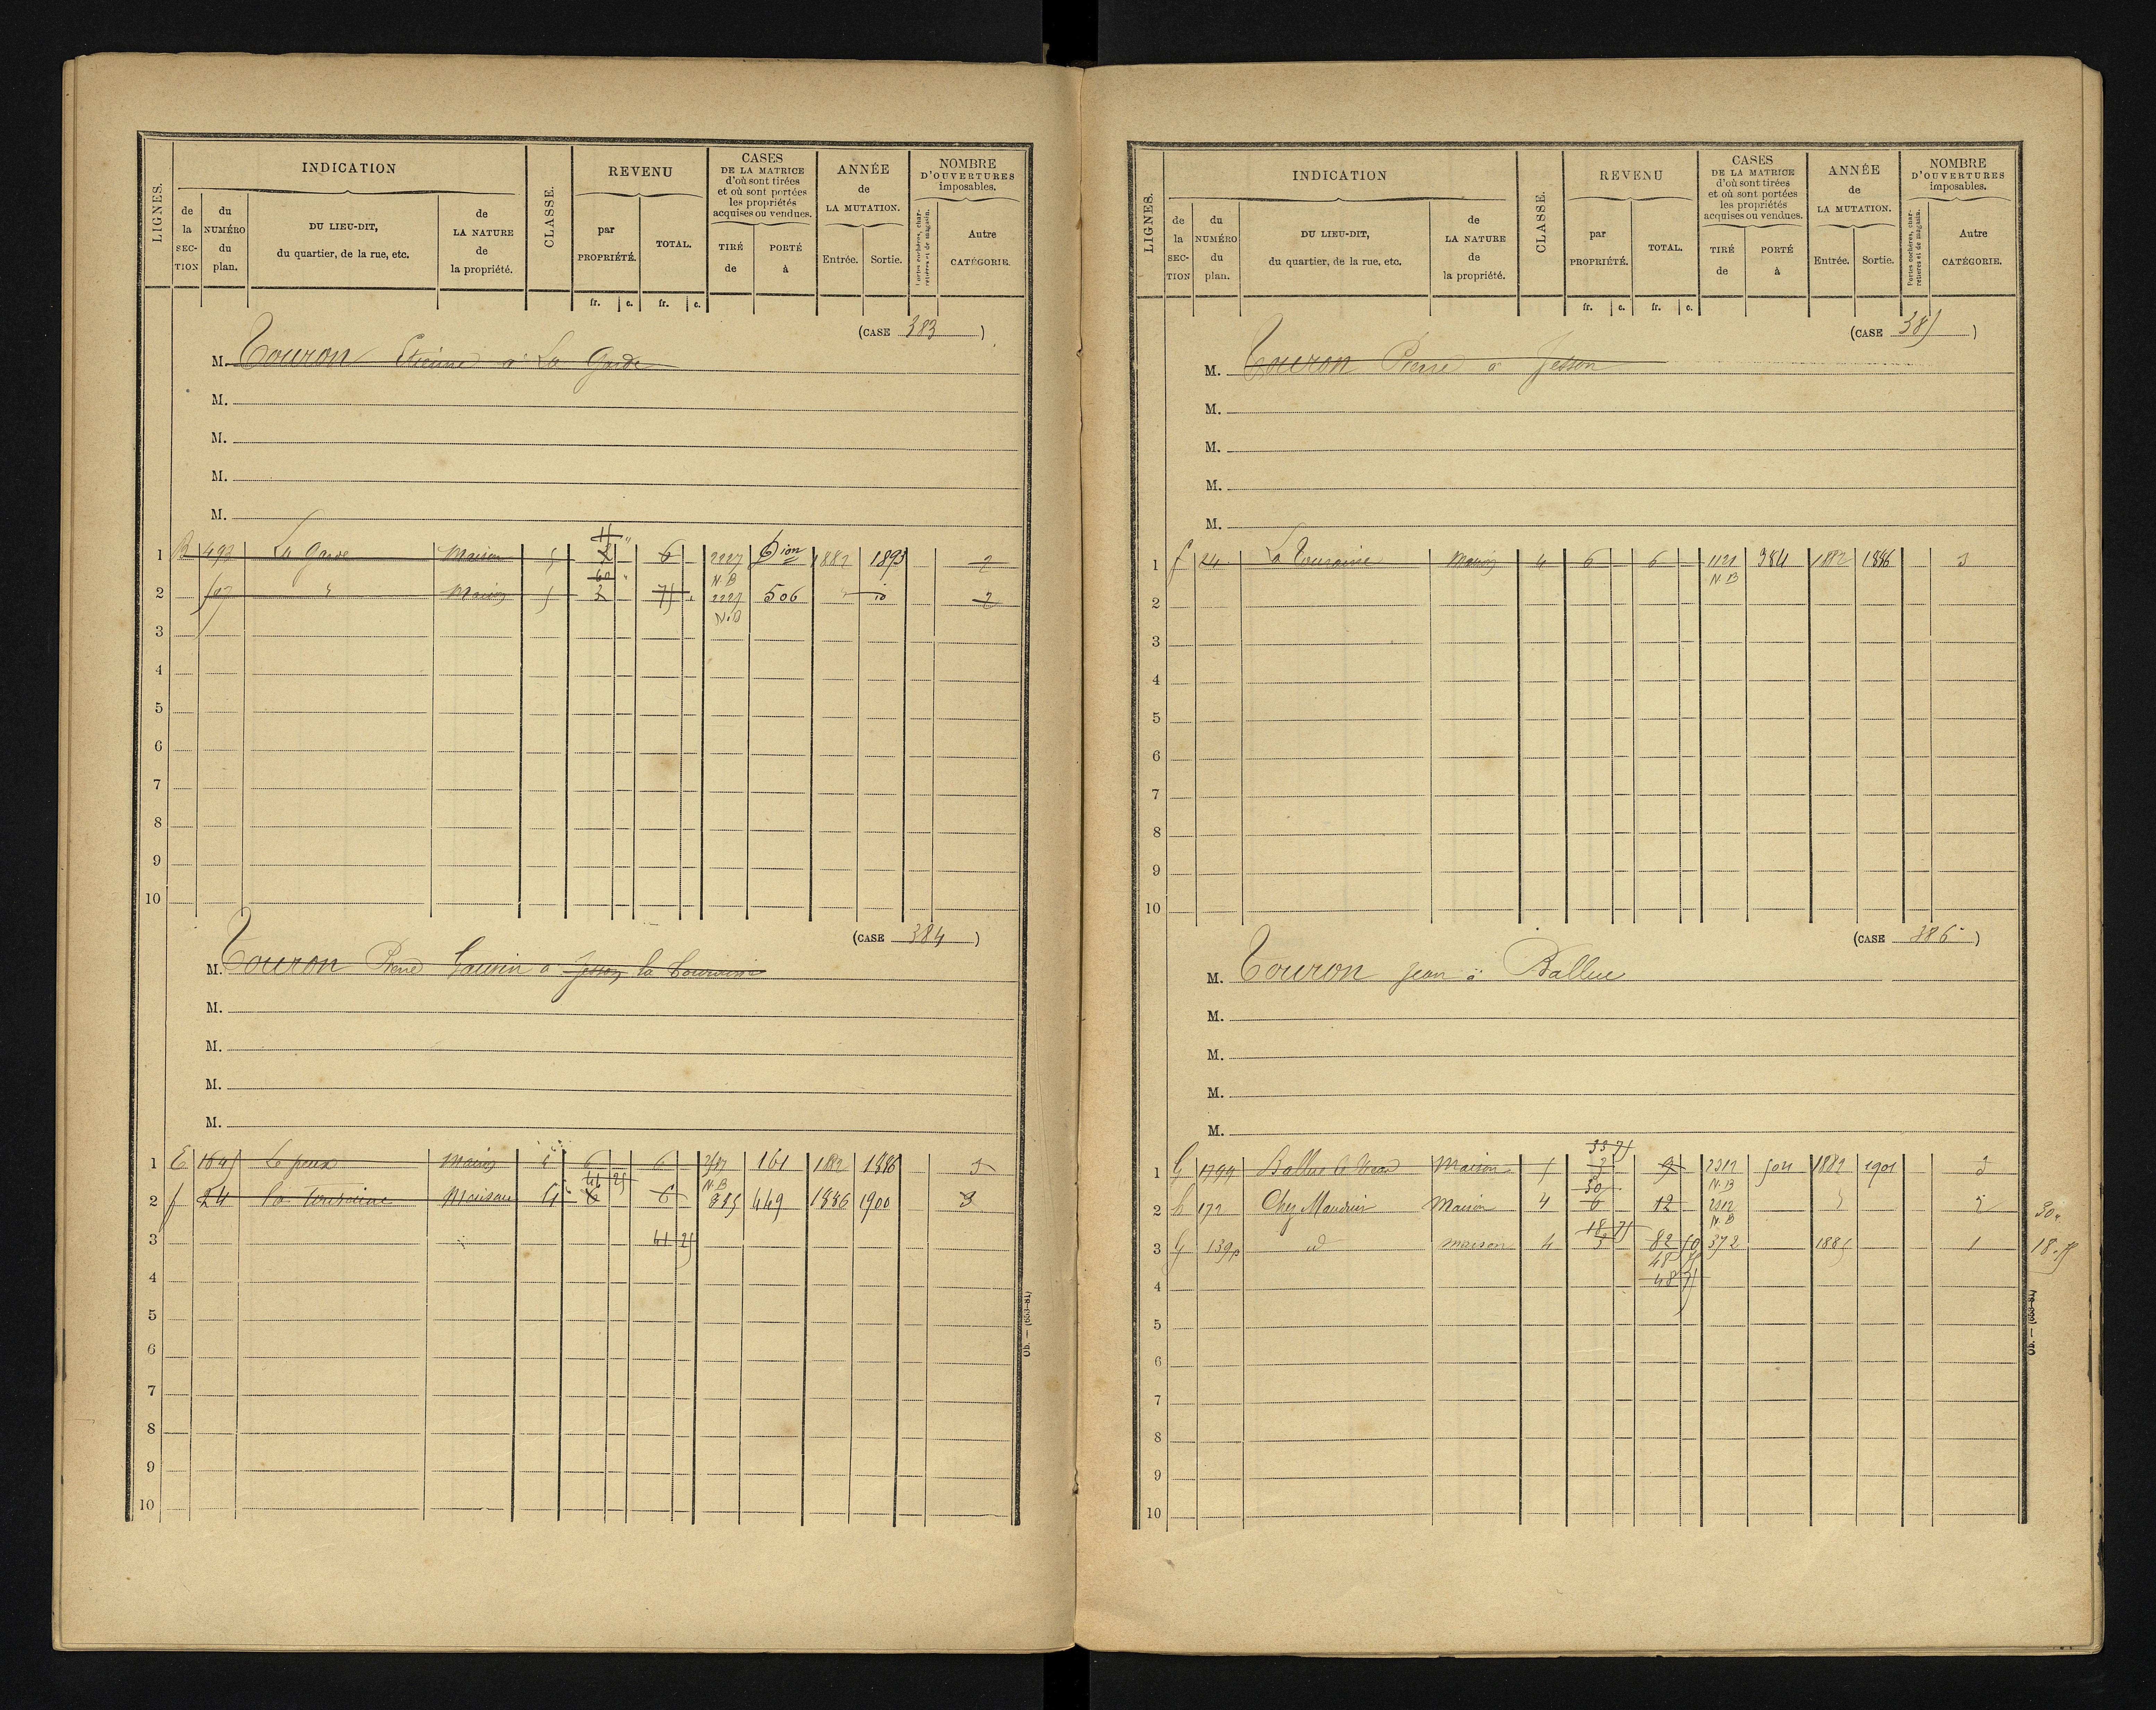 LIGNES. INDICATION CLASSE. REVENU CASES DE LA MATRICE d'où sont tirées et où sont portées les propriétés acquises ou vendues. ANNÉE de LA MUTATION. NOMBRE D'OUVERTURES imposables.
de la SECTION du NUMÉRO du plan. DU LIEU-DIT, du quartier, de la rue, etc. de LA NATURE de la propriété. par PROPRIÉTÉ. TOTAL. TIRÉ de PORTÉ à Entrée. Sortie. Portes cochères, charretières et de magasin. Autre CATÉGORIE.
fr. c. fr. c.
(CASE 383)
M. Touron Etienne à La Garde
M.
M.
M.
M.
1 B 493 La Garde Maison 5 6 2227 N.B 1882 1895 2
2 597 Maison 5 75 2227 N.B 506 2
3
4
5
6
7
8
9
10
(CASE 384)
M. Touron Pierre à Jesson la Touraine
M.
M.
M.
M.
1 E Le peux Maison 6 6 N.B 161 1882 1886 3
2 f 24 la Touraine Maison 4 41 25 6 6 449 1886 1900 3
3 41 25
4
5
6
7
8
9
10
Ob. — (653-81)
LIGNES. INDICATION CLASSE. REVENU CASES DE LA MATRICE d'où sont tirées et où sont portées les propriétés acquises ou vendues. ANNÉE de LA MUTATION. NOMBRE D'OUVERTURES imposables.
de la SECTION du NUMÉRO du plan. DU LIEU-DIT, du quartier, de la rue, etc. de LA NATURE de la propriété. par PROPRIÉTÉ. TOTAL. TIRÉ de PORTÉ à Entrée. Sortie. Portes cochères, charretières et de magasin. Autre CATÉGORIE.
fr. c. fr. c.
(CASE 385)
M. Touron Pierre à Jesson
M.
M.
M.
M.
1 f 24 La Touraine Maison 4 6 6 1121 N.B 384 1882 1886 3
2
3
4
5
6
7
8
9
10
(CASE 386)
M. Touron Jean à Ballue
M.
M.
M.
M.
1 G 1799 Ballue Maison 5 33 75 3 9 2312 N.B 504 1882 1901 3
2 h 172 Chez Mandrier Maison 4 30 6 12 2312 N.B 30
3 G 139p id maison 4 18 75 3 82 50 372 1885 1 18.75
48 75
4 48 75
5
6
7
8
9
10
Ob. — (653-81)